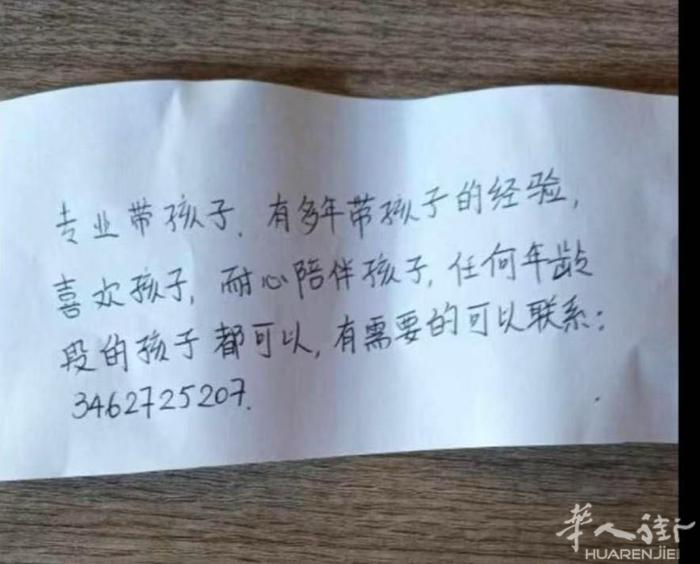 专业带孩子.有多年带孩子的经验,
喜欢孩子,耐心陪伴孩子,任何年龄
段的孩子都可以,有需要的可以联系:
3462725207.
华人街
HUARENJIE